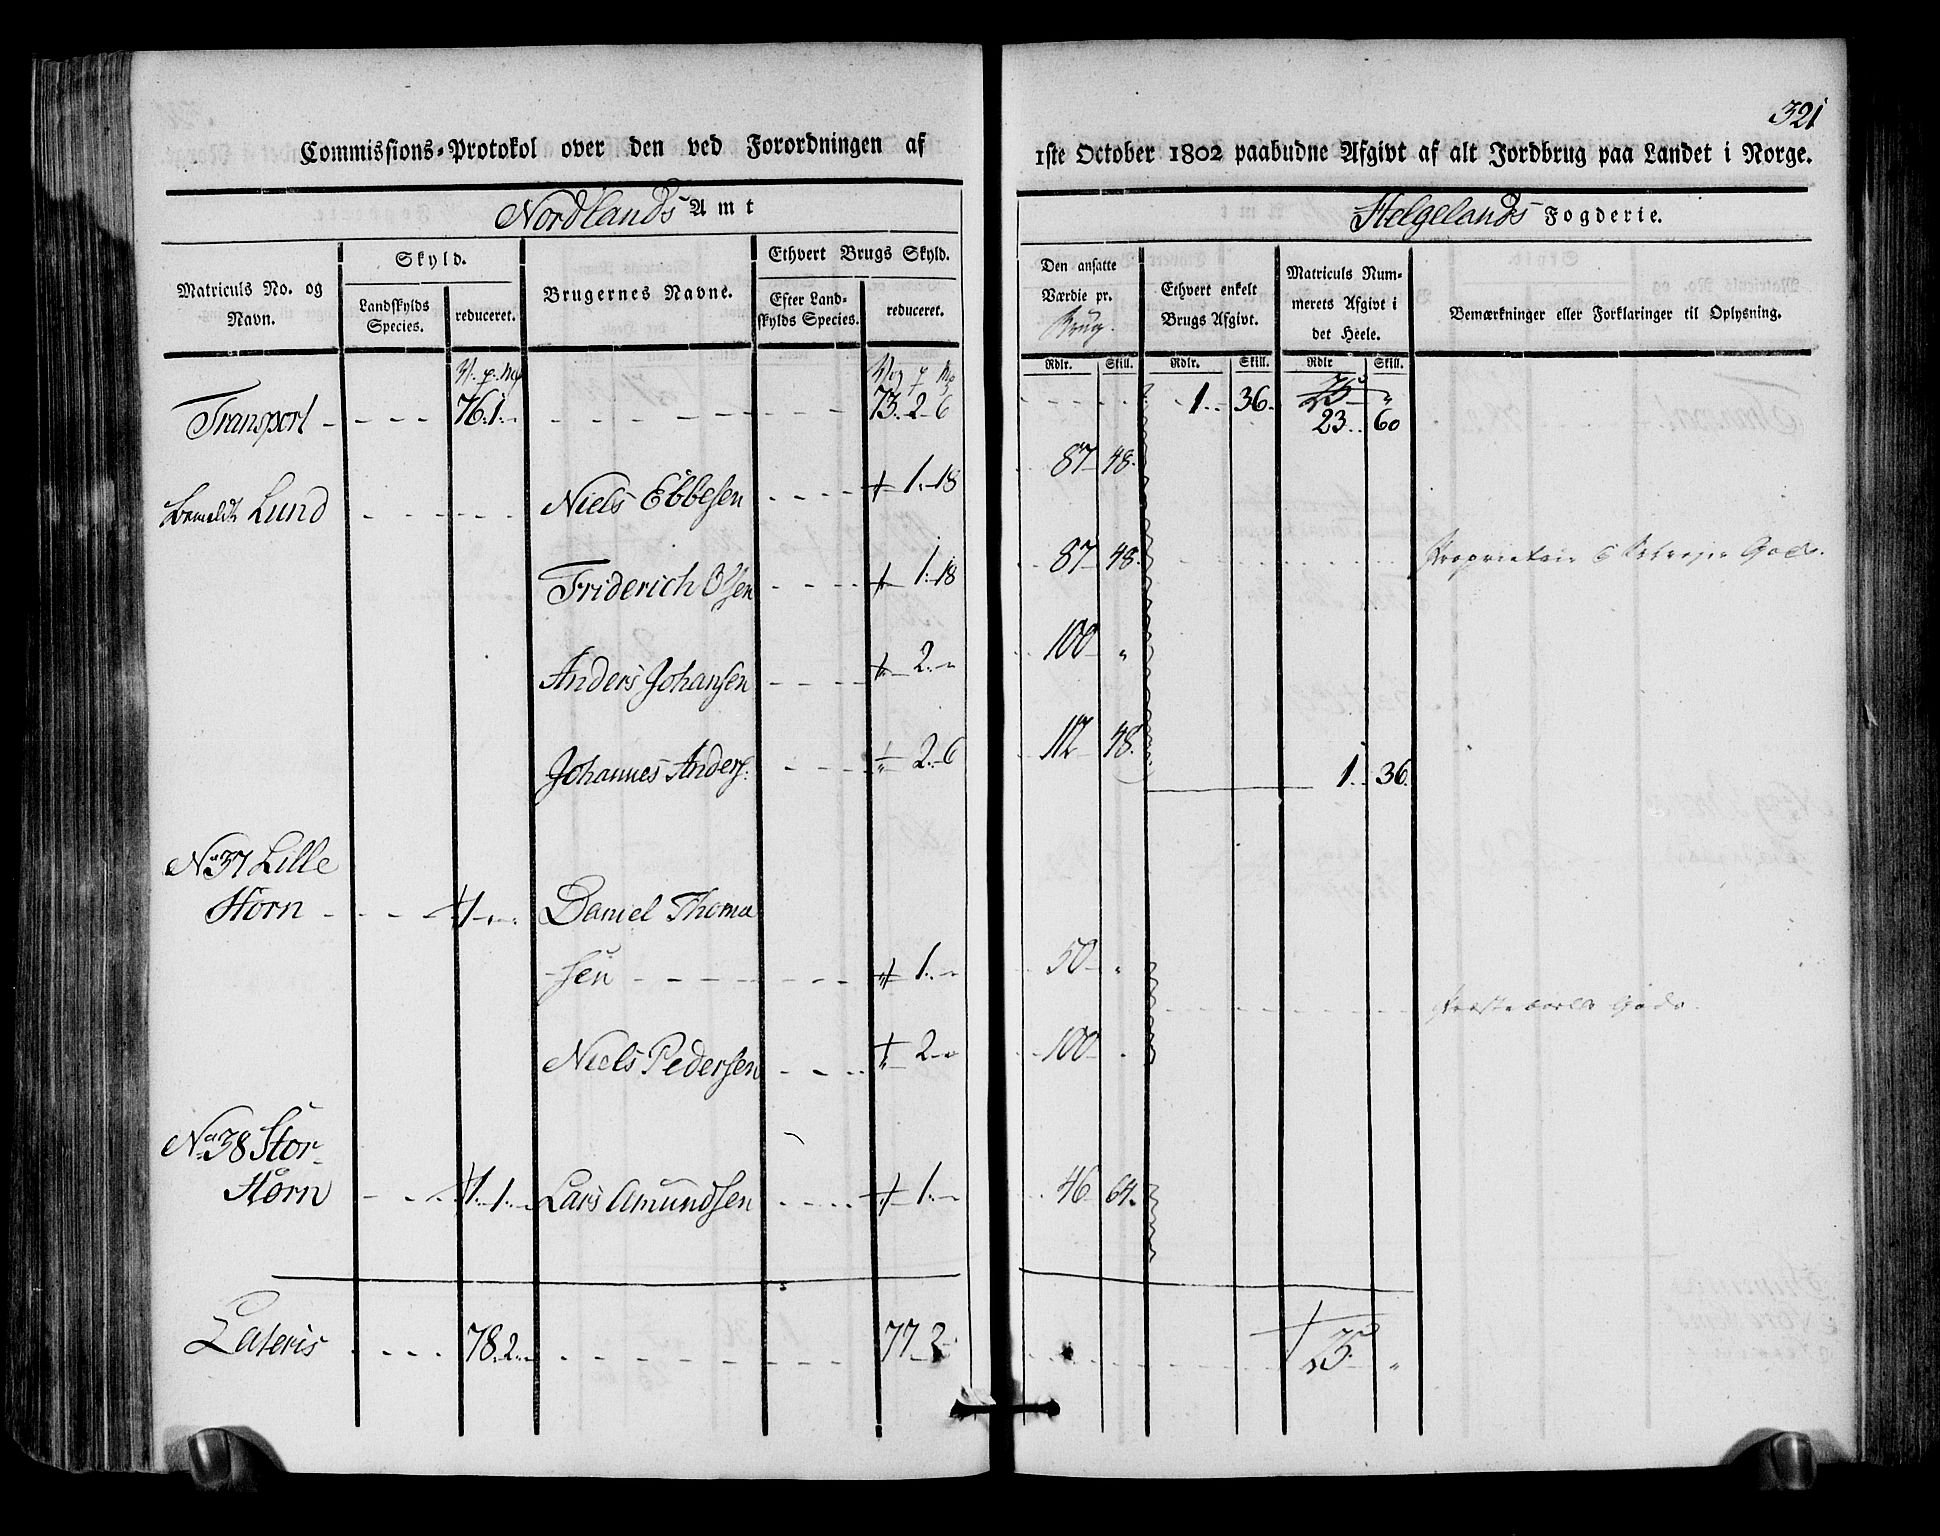 321
Commissions-Protokol over den ved Forordningen af 1ste October 1802 paabudne Afgivt af alt Jordbrug paa Landet i Norge.
Nordlands Amt
Helgelands Fogderie.
Matriculs No. og Navn.
Skyld.
Landskylds Species.
reduceret.
Brugernes Navne.
Ethvert Brugs Skyld.
Efter Landskylds Species.
reduceret.
Den ansatte Værdie pr. Brug.
Rdlr. Skill.
Ethvert enkelt Brugs Afgivt.
Rdlr. Skill.
Matriculs Nummerets Afgivt i det Heele.
Rdlr Skill.
Bemærkninger eller Forklaringer til Oplysning.
Transport - - - - 76. 1. - - - - 73. 2 - 6 - - - 1. 36. 23. 60
Lund - - - Niels Ebbesen - - - 1. 18 87 48.
Friderich Olsen - - - 1. 18 87 48. Proprietair Gods.
Anders Johansen - - - 2. " 100 "
Johannes Anders: - - - 2. 6 112 48. 1. 36.
No 37 Lille
Horn - - - 1 - " Daniel Thoma
sen - - - 1. - 50 - "
Gods.
Niels Pedersen - - - 2 - " 100 - "
No 38 Stor
Horn - - - 1. 1. - Lars Amundsen - - - 1. - 46 64.
Lateris - - - 78. 2. - - - - 77. 2 - - - 25. "